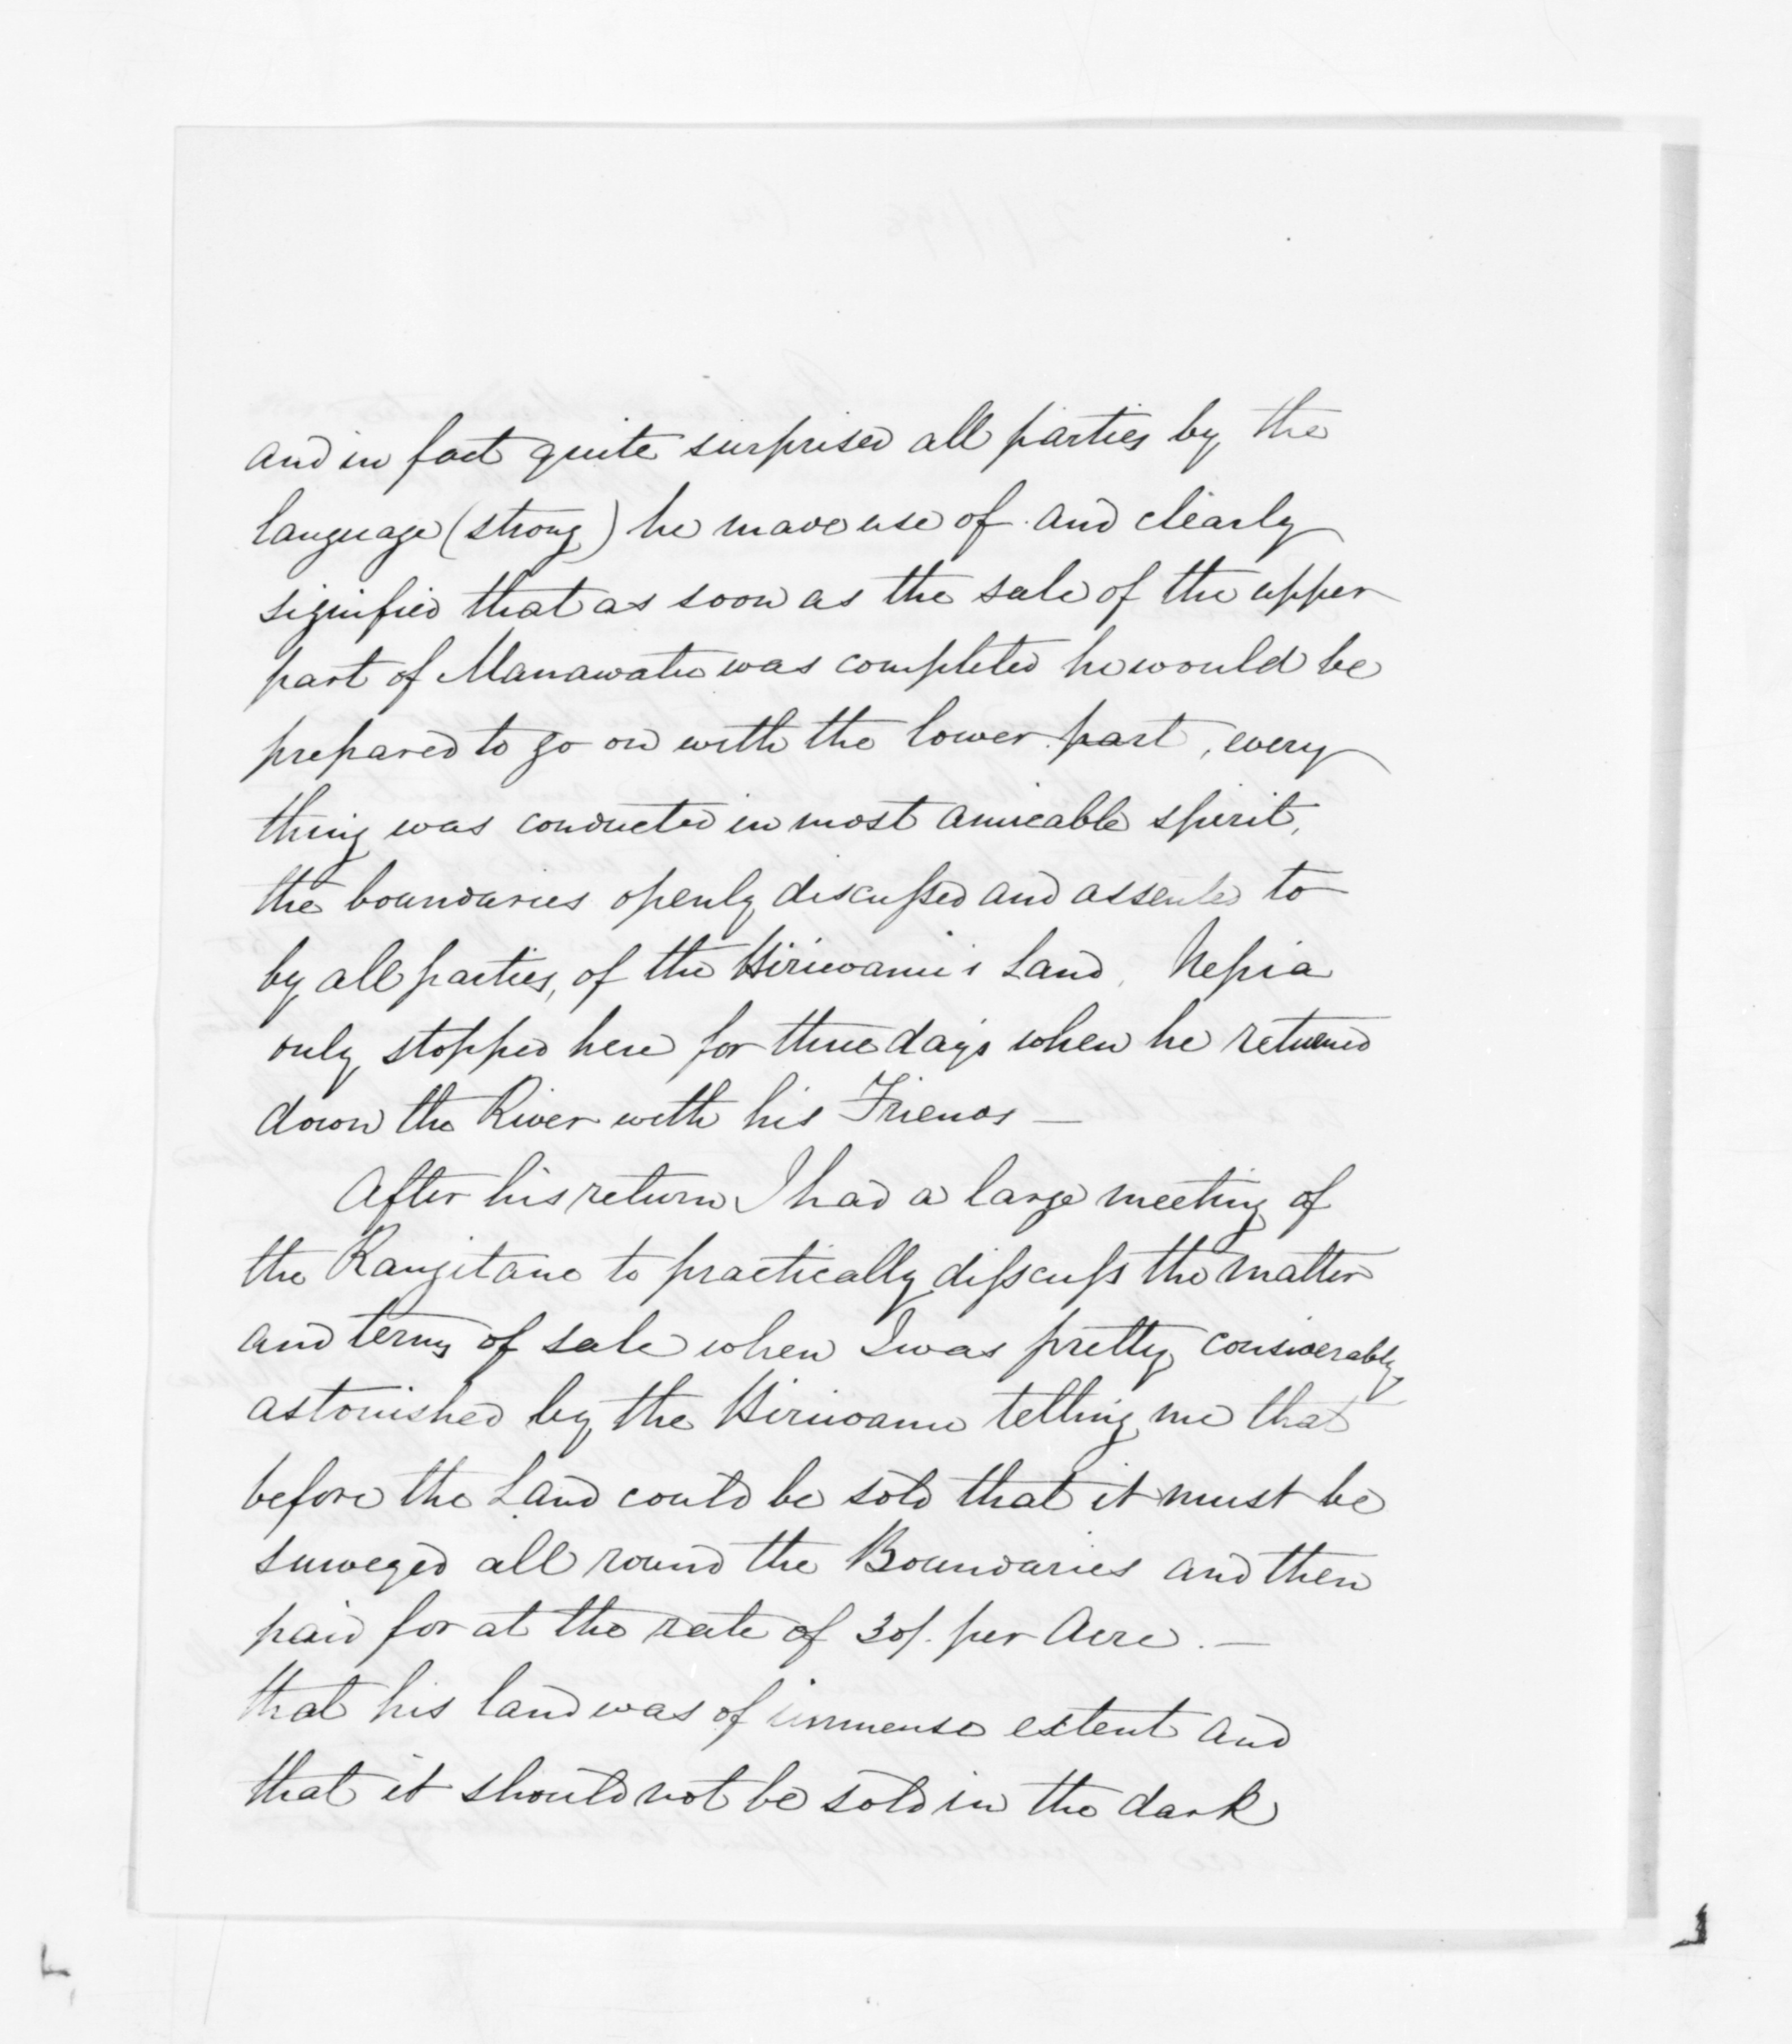 and in fact quite surprised all parties by the
language (strong) he made use of. and clearly
signified that as soon as the sale of the upper
part of Manawatu was completed he would be
prepared to go on with the lower part, every
thing was conducted in most amicable spirit,
the boundaries openly discussed and assented to
by all parties, of the Hirewanu's Land, Nepia
only stopped here for three days when he returned
down the River with his Friends —
After his return I had a large meeting of
the Rangitane to practically disscuss the matter
and terms of sale when I was pretty considerably
astonished by the Hirewanu telling me that
before the Land could be sold that it must be
surveyed all round the Boundaries and then
paid for at the rate of 30/. per Acre. —
that his land was of immense extent and
that it should not be sold in the dark